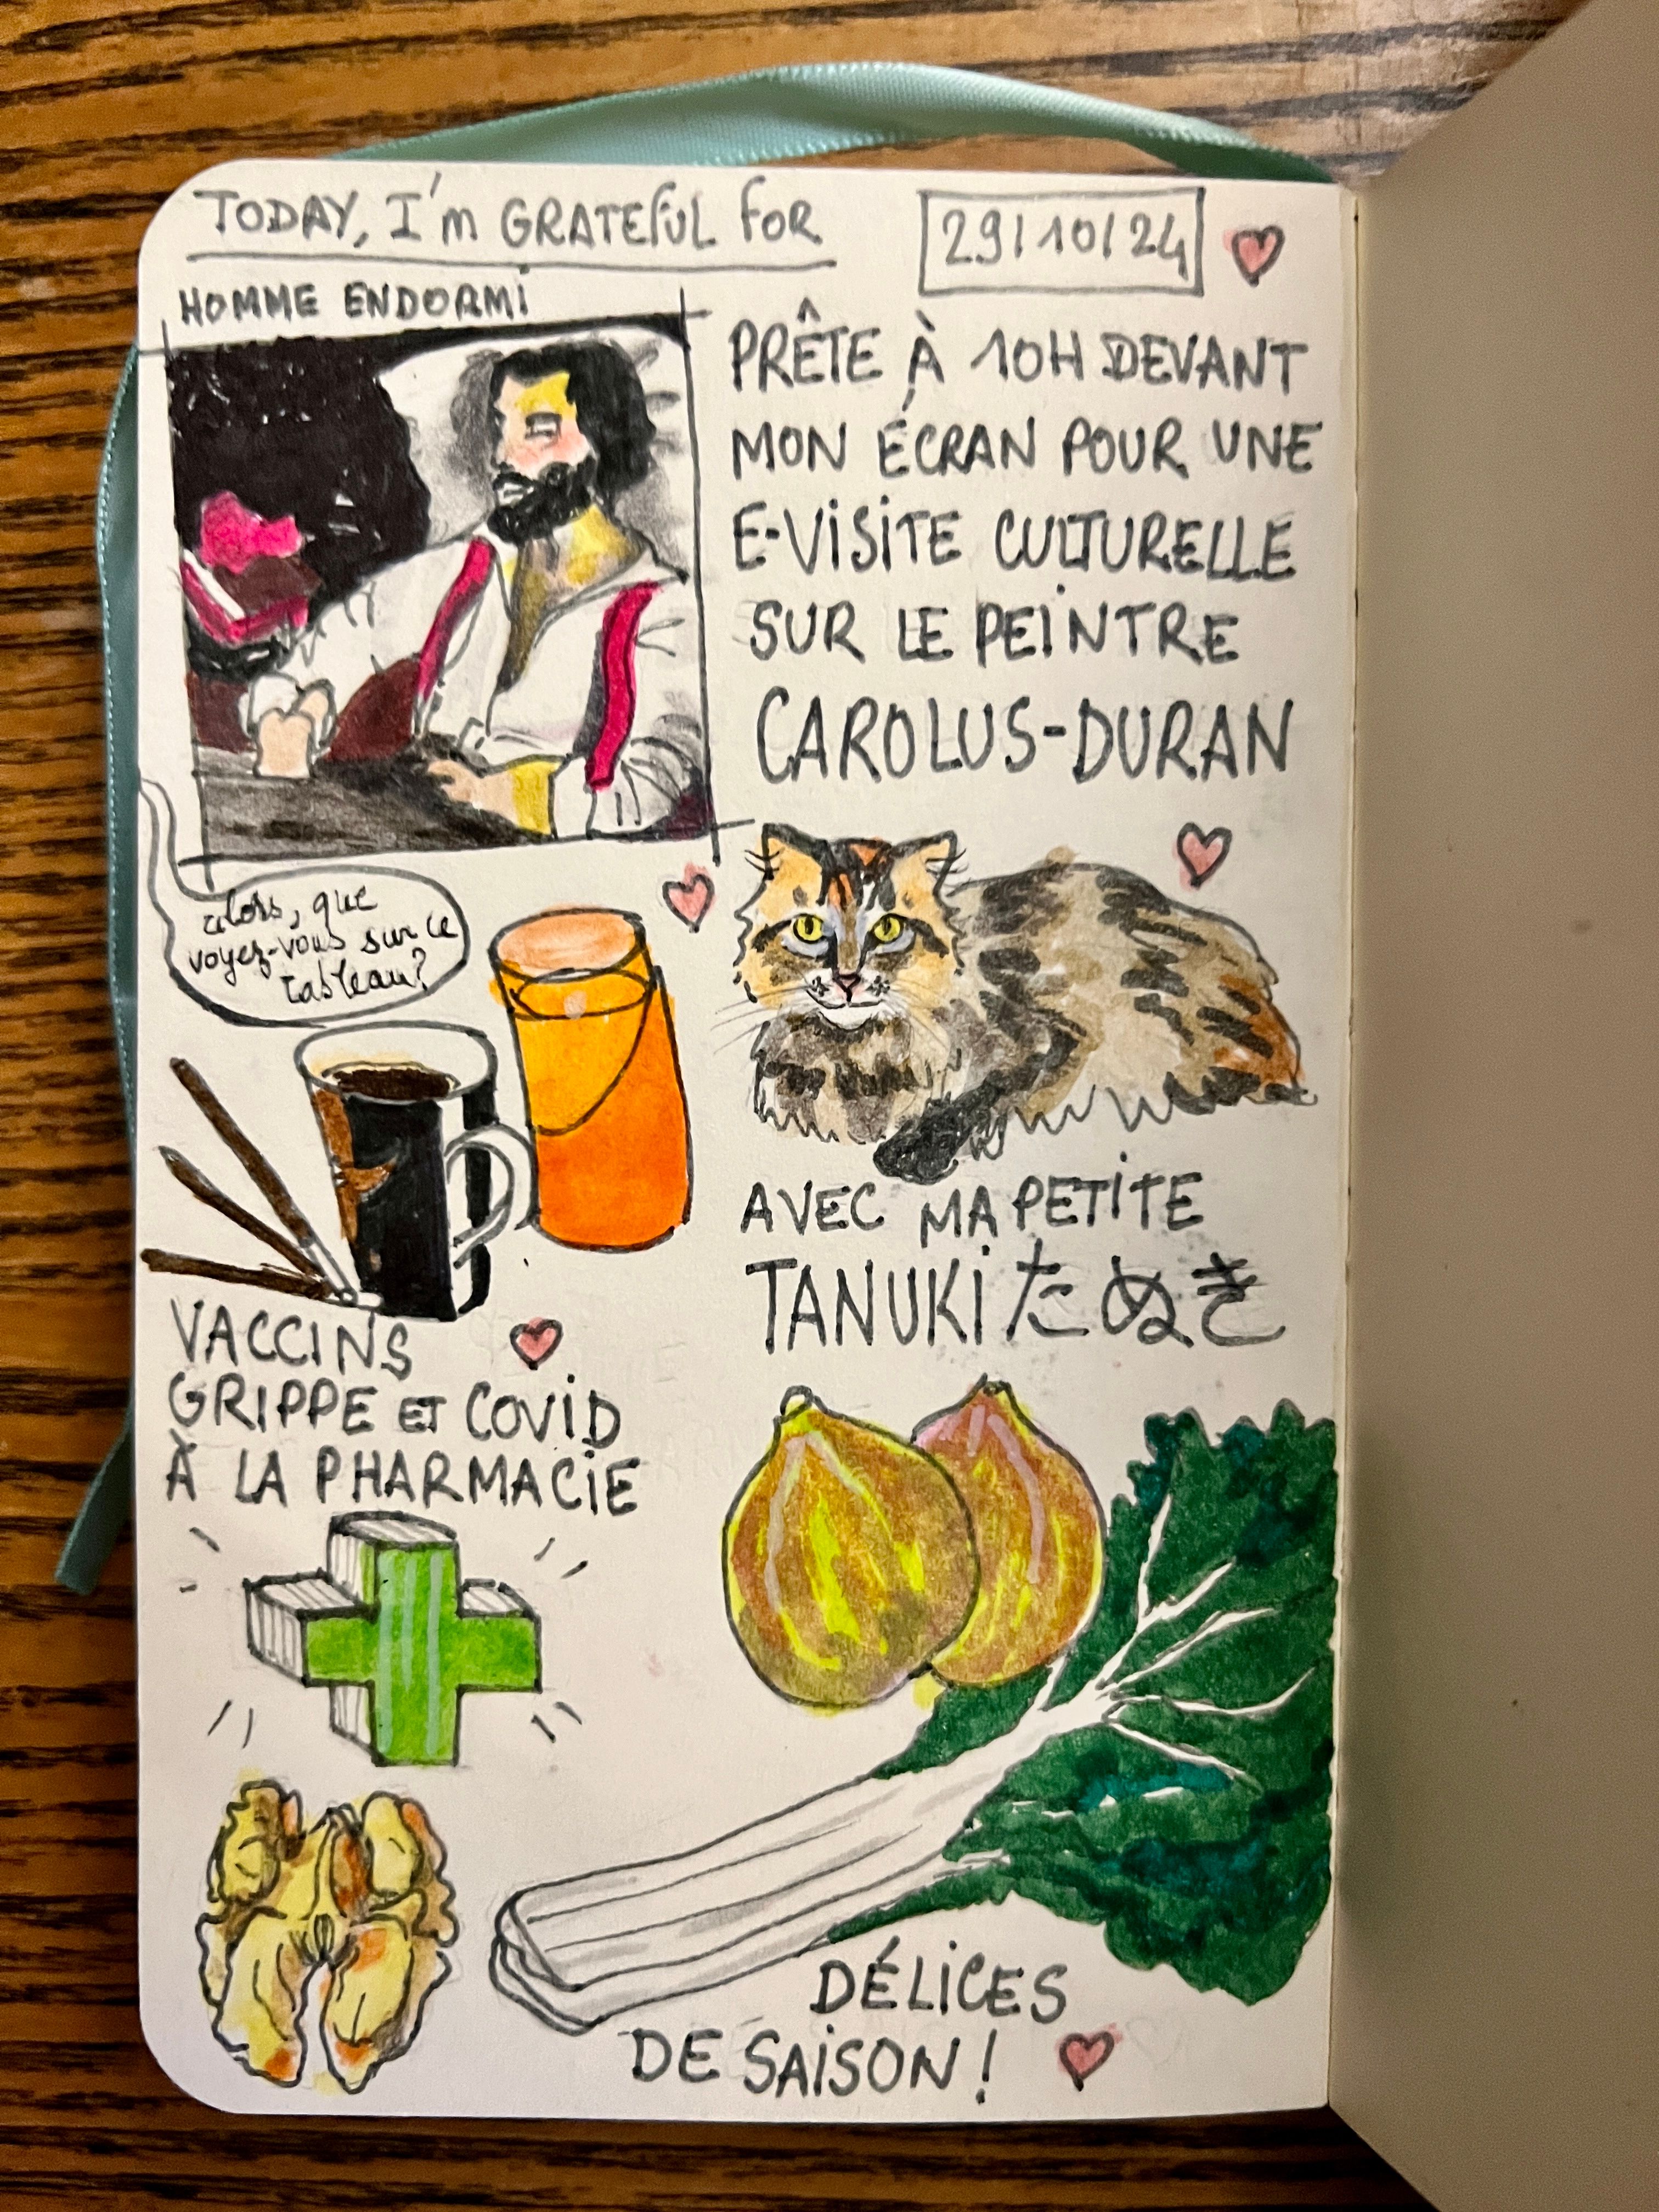 TODAY, I'm GRATEFUL FOR
29/10/24
HOMME ENDORMI
PRÊTE À 10H DEVANT
MON ÉCRAN POUR UNE
E-VISITE CULTURELLE
SUR LE PEINTRE
CAROLUS-DURAN
alors, que
voyez-vous sur ce
tableau?
AVEC MA PETITE
TANUKI たぬき
VACCINS
GRIPPE ET COVID
À LA PHARMACIE
DÉLICES
DE SAISON !